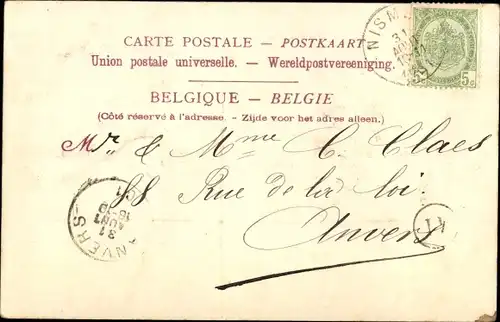 CARTE POSTALE — POSTKAART
Union postale universelle. — Wereldpostvereeniging.
BELGIQUE — BELGIE
(Côté réservé à l'adresse. - Zijde voor het adres alleen.)
Mr & Mme C. Claes
88 Rue de la loi
Anvers
NISM
31
AOUT
5c 5c
ANVERS
31
AOUT